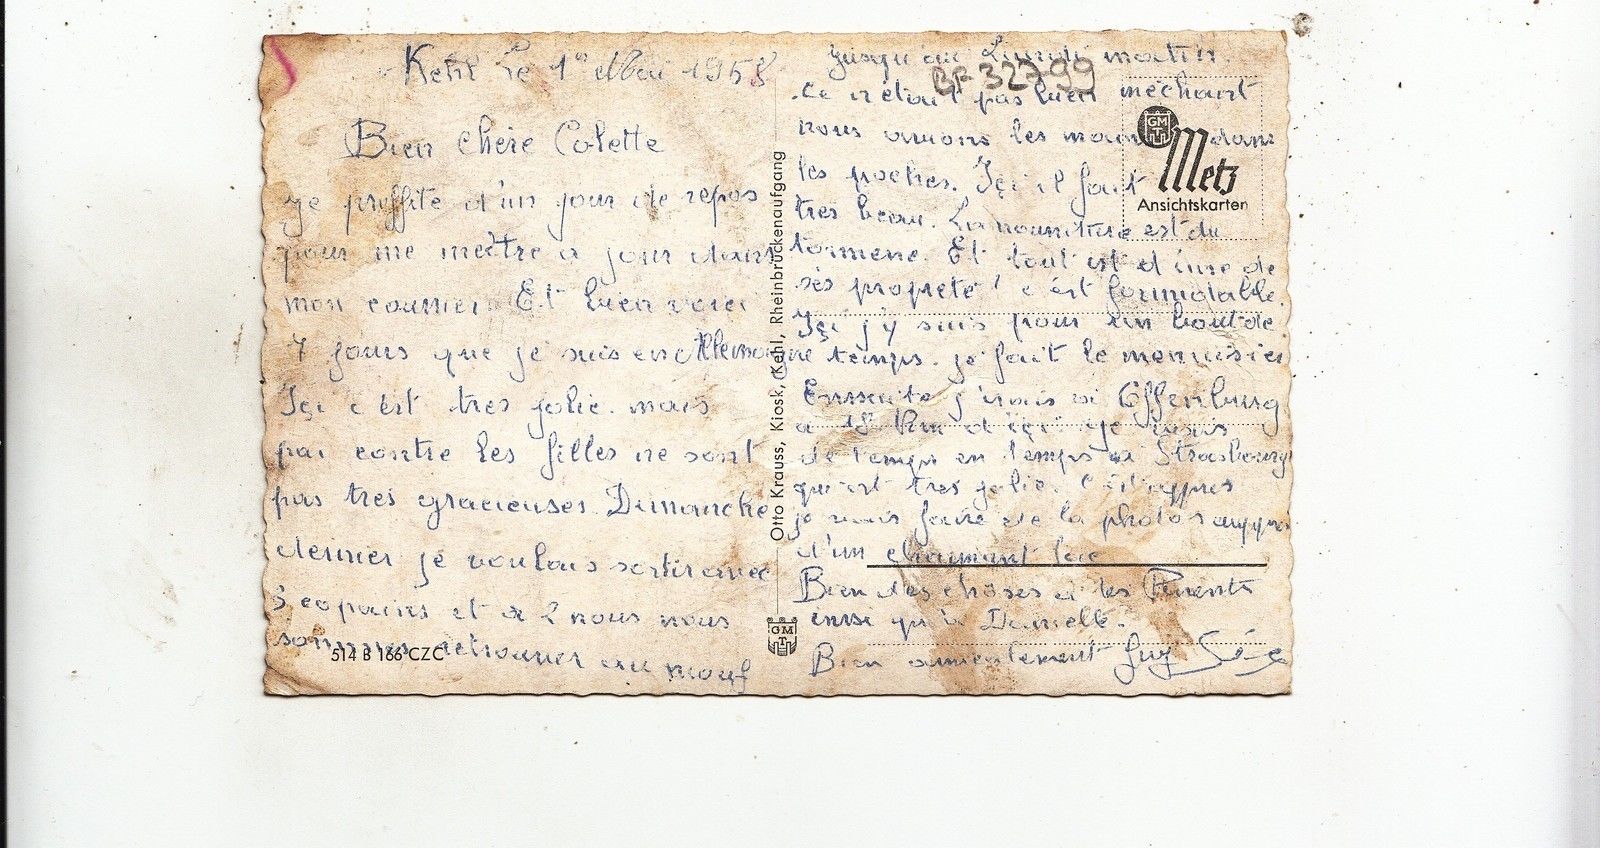 Kehl Le 1er Mai 1958
Bien chère Colette
je proffite d'un jour de repos
pour me mettre a jour dans
mon courrier. Et bien voici
7 jours que je suis en Allemagne
Içi c'est tres jolie. mais
par contre les filles ne sont
pas tres gracieuses. Dimanche
dernier je voulais sortir avec
3 copains et a 2 nous nous
sommes retrouver au mouf
514 B 166 CZC
Otto Krauss, Kiosk, Kehl, Rheinbrückenaufgang
GMT
jusqu'au Lundi matin.
BF 327-99
Ce n'etait pas bien mechant
nous avions les mains dans
les poches. Içi il fait
tres beau. La nourriture est du
tonnere. Et tout est d'une de
ses propreté! c'est formidable.
Içi j'y suis pour un bout de
temps. je fait le menuisier
Enssuite j'irais a Offenburg
a Km d'içi. je vais
de temps en temps a Strasbourg
qui est tres jolie.
je vais faire de la photos auppres
d'un charmant lac
Bien des choses a tes Parents
ensi qu'à Danielle.
Bien amicalement Guy
GMT
Metz
Ansichtskarten